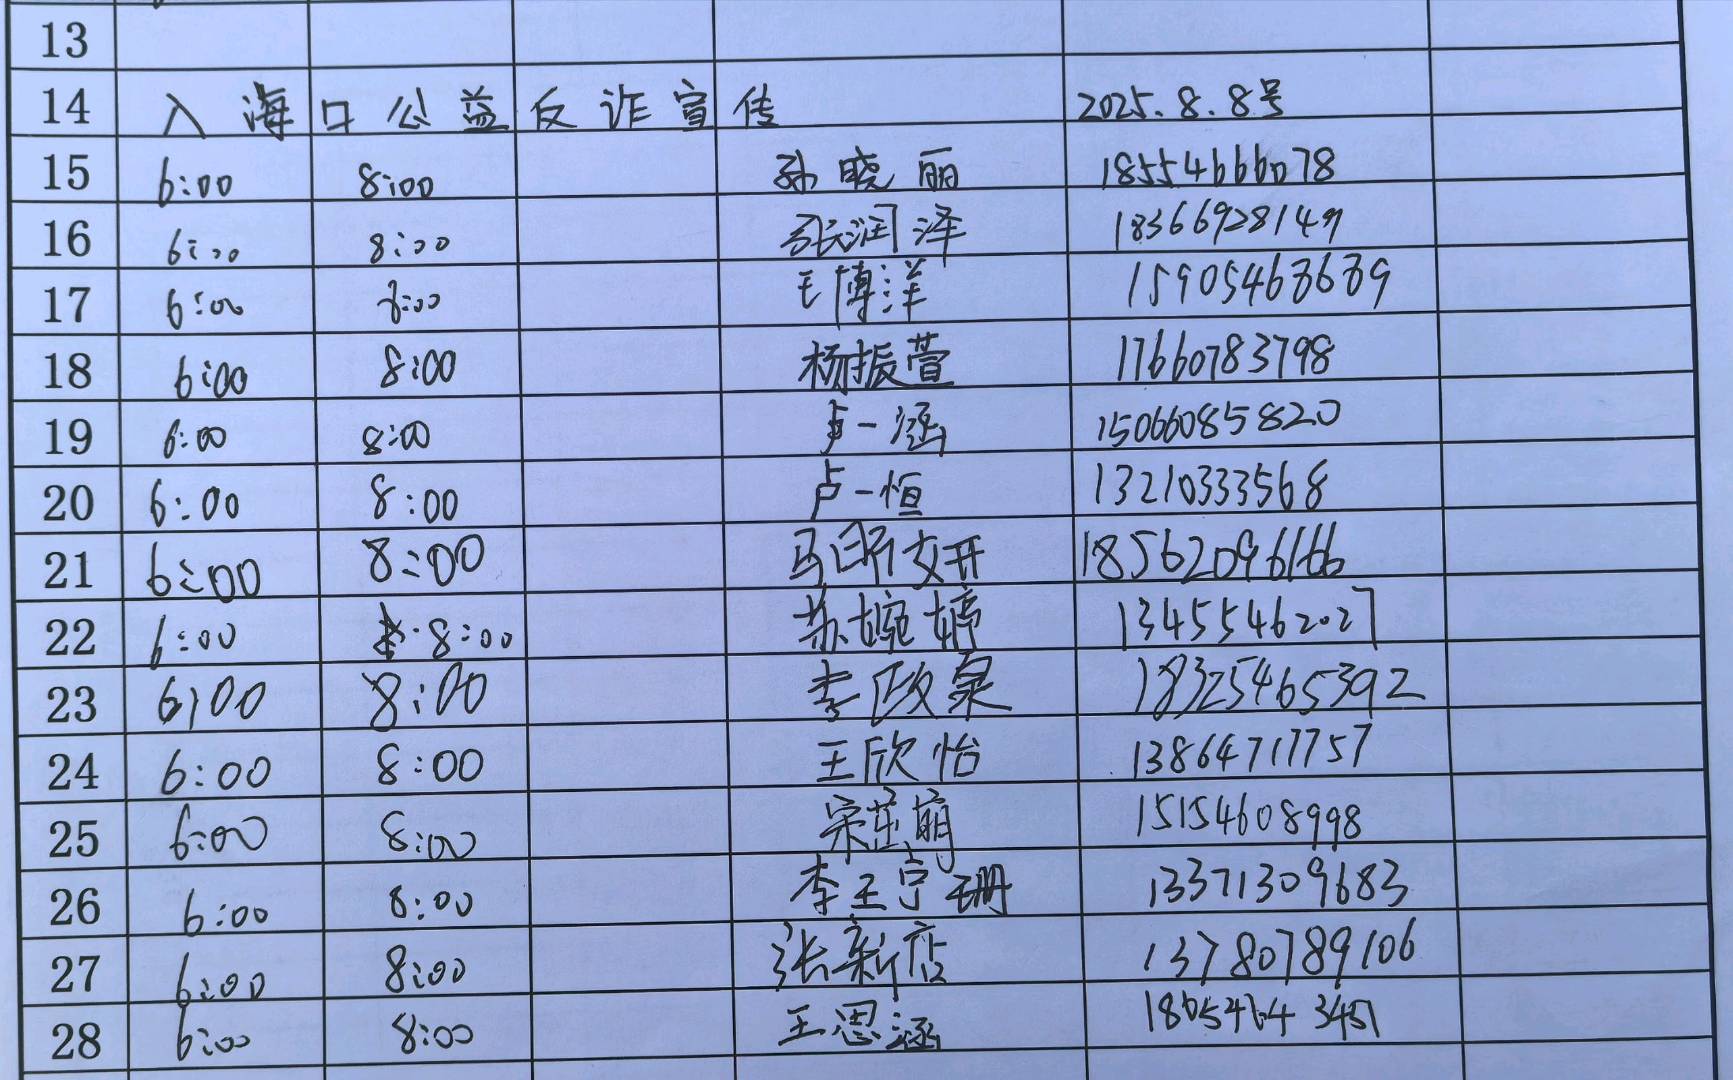 13
14 入海口公益反诈宣传 2025.8.8号
15 6:00 8:00 孙晓丽 18554666078
16 6:00 8:00 张润泽
17 6:00 8:00 王博洋 15905468689
18 6:00 8:00 杨振萱 17660783798
19 6:00 8:00 卢一涵 15066085820
20 6:00 8:00 卢一恒 13210333568
21 6:00 8:00 马昕妍 18562096166
22 6:00 8:00 苏婉婷 13455462027
23 6:00 8:00 李政泉 18325465392
24 6:00 8:00 王欣怡 13864717757
25 6:00 8:00 15154608998
26 6:00 8:00 李王宁珊 13371309683
27 6:00 8:00 张新店 13780789106
28 6:00 8:00 王思涵